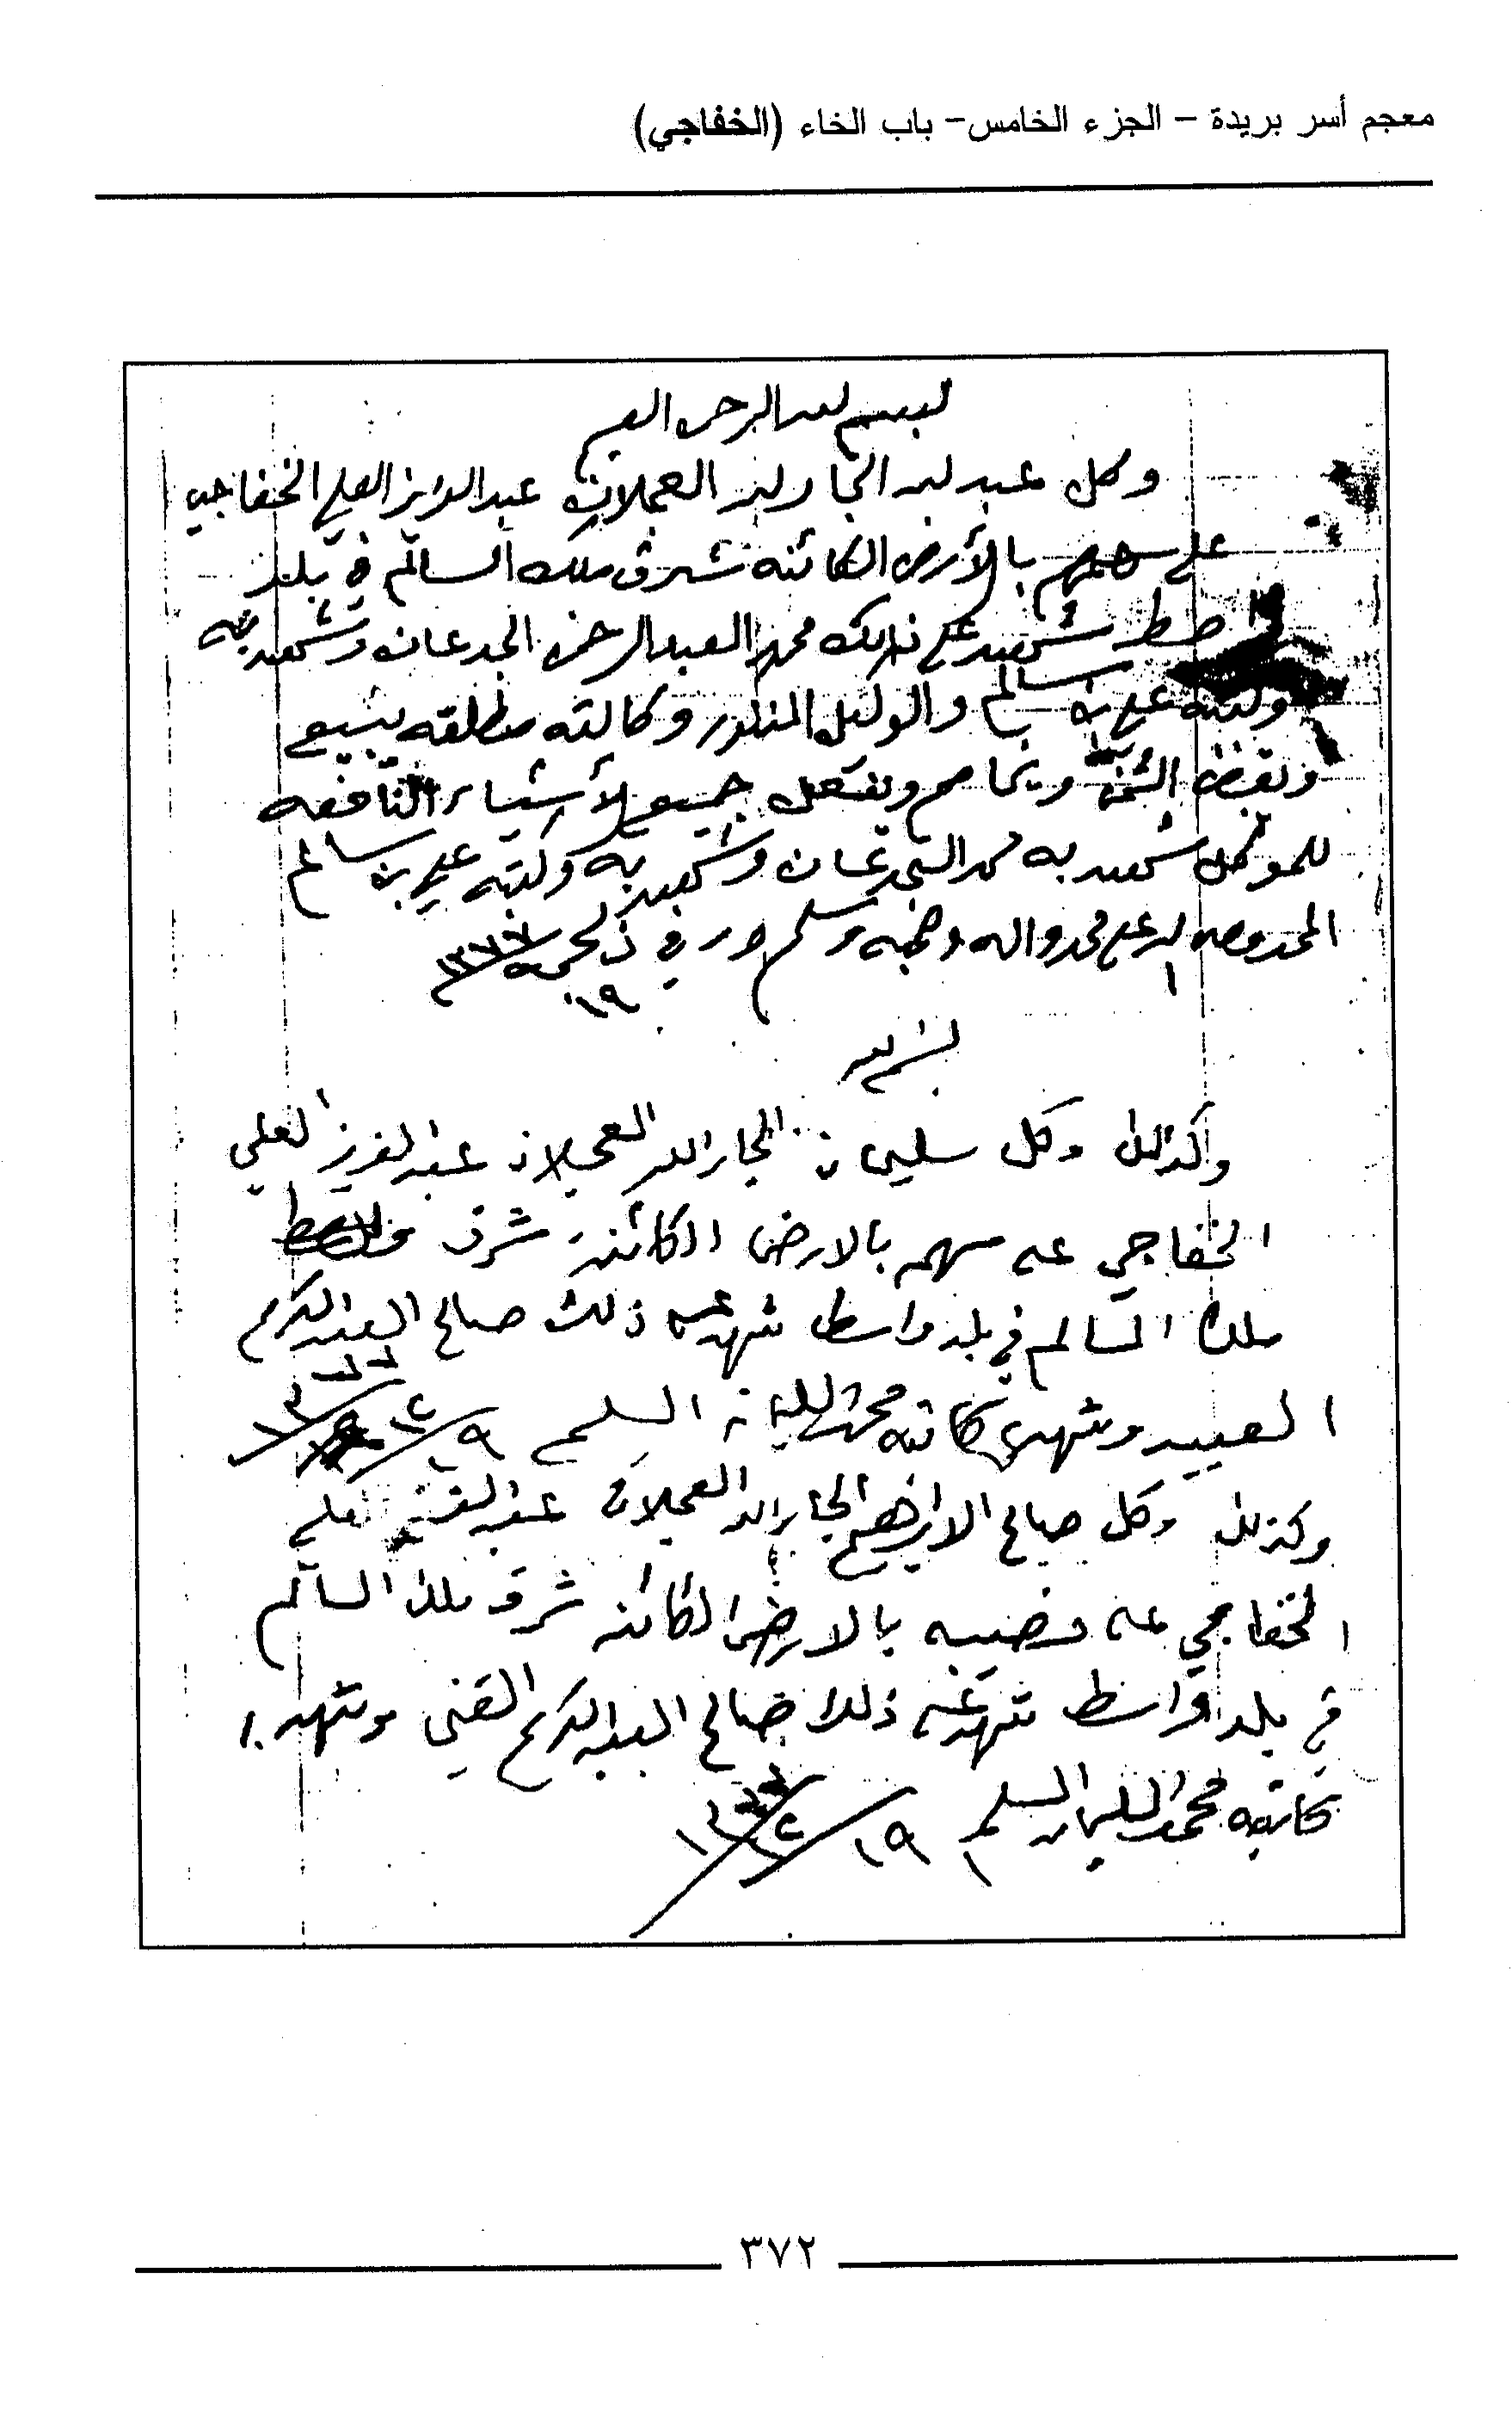 معجم أسر بريدة – الجزء الخامس– باب الخاء (الخفاجي)
بسم الله الرحمن الرحيم
وكل عبد الله الجار الله العجلان عبد العزيز العلي الخفاجي
على سهمه بالأرض الكائنه شرق ملك السالم في بلد
واسط شهد على ذلك محمد العبد الرحمن الجدعان وشهد به
وكتبه علي بن سالم والوكيل المذكور وكالته مطلقه يبيع
ويقبض الثمن ويخاصم ويفعل جميع الأشياء النافعه
للموكل شهد به محمد الجدعان وشهد به وكتبه علي بن سالم
الحمد وصلى الله على محمد واله وصحبه وسلم في ذلحجه
١٩
بسم الله
وكذلك وكل سليمان الجار الله العجلان عبد العزيز العلي
الخفاجي على سهمه بالارض الكائنة شرق
ملك السالم في بلد واسط شهد على ذلك صالح العبد الكريم
العبيد وشهد كاتبه محمد السليمان السليم ١٩/١٢
وكذلك وكل صالح الابراهيم الجار الله العجلان عبد العزيز العلي
الخفاجي على نصيبه بالارض الكائنه شرق ملك السالم
في بلد واسط شهد على ذلك صالح العبد الكريم وشهد به
كاتبه محمد السليمان السليم ١٩/١٢
٣٧٢